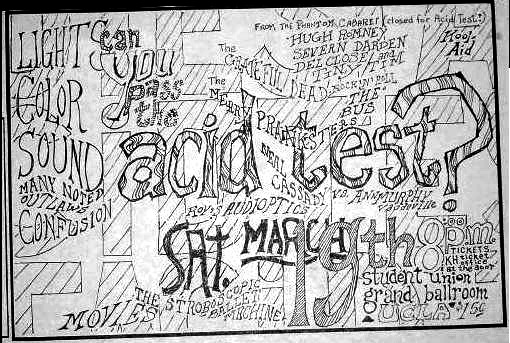 Can
You
pass
the
acid test?
LIGHTS
COLOR
SOUND
MANY NOTED
OUTLAWS
CONFUSION
FROM THE PHANTOM CABARET (closed for Acid Test!)
HUGH ROMNEY
SEVERN DARDEN
DEL CLOSE and
TINY TIM
Kool-
Aid
The
GRATEFUL DEAD
ROCKIN' ROLL
The
MERRY PRANKSTERS
"THE
BUS
NEAL
CASSADY vs. ANN MURPHY
vaudeville
ROY'S AUDIOPTICS
SAT. MARCH 19th 8 p.m.
TICKETS
KH ticket
office
at the door
student union
grand ballroom
UCLA $1.50
THE STROBOSCOPIC
BALLET
MACHINE
MOVIES